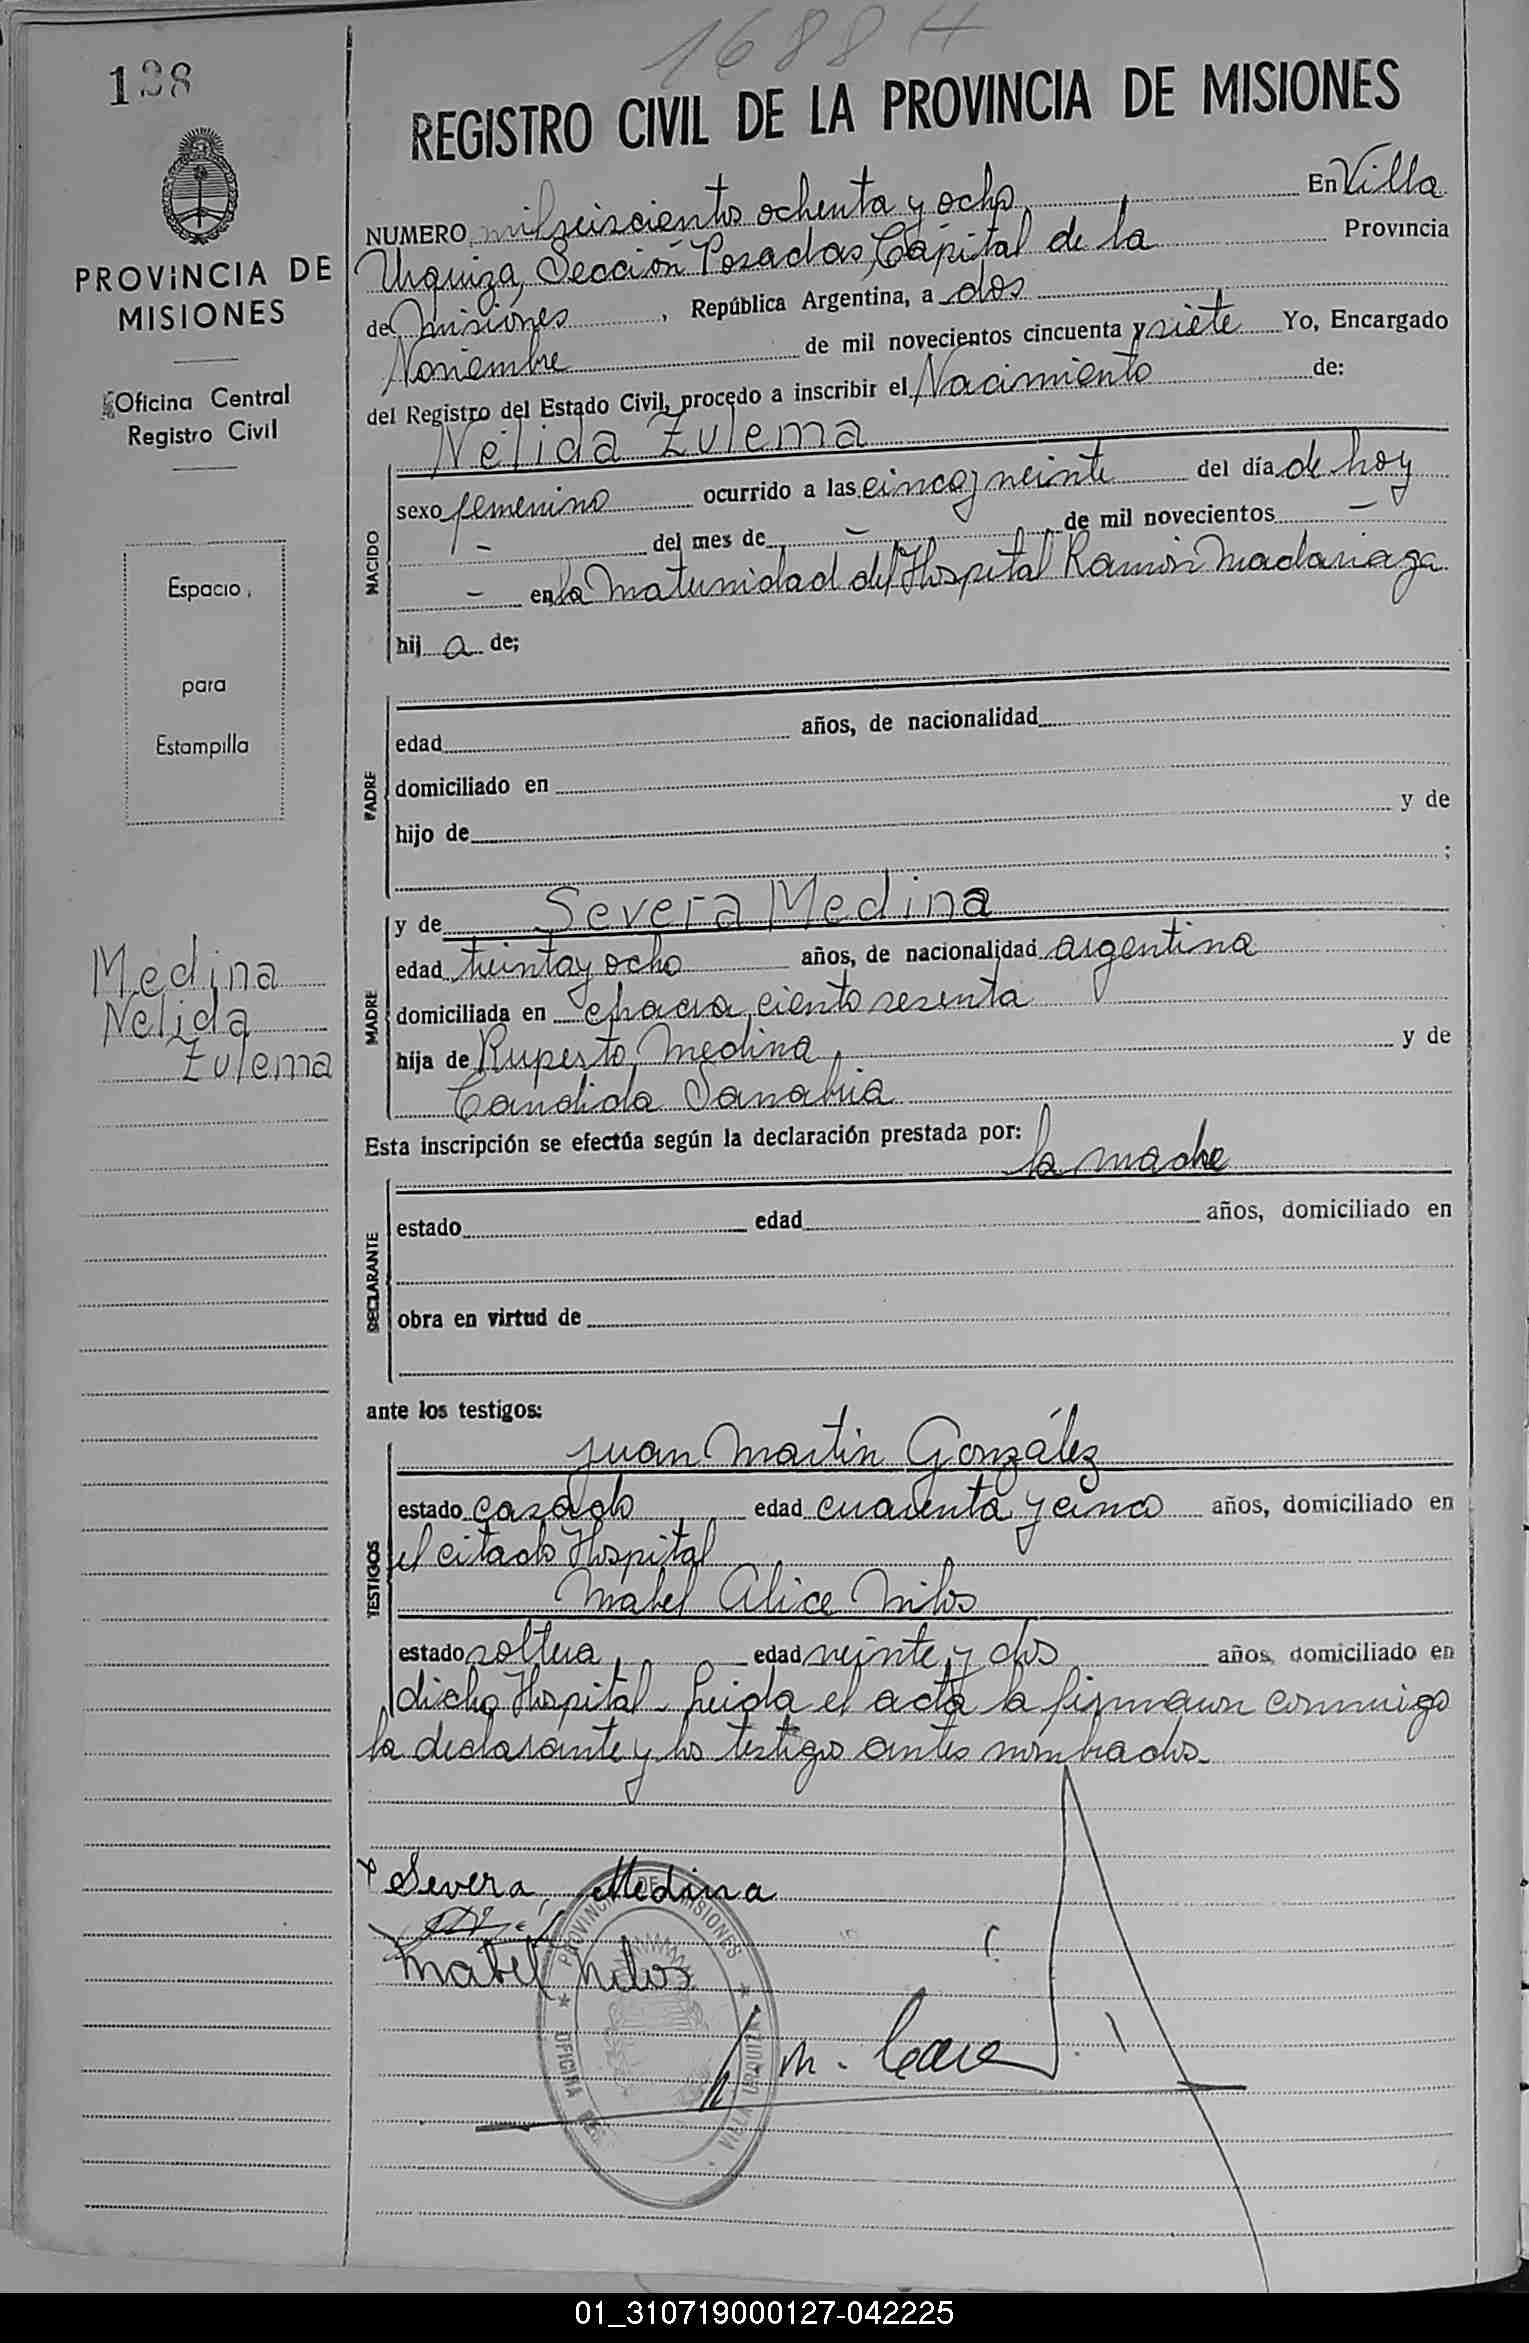 1688 H
138
REGISTRO CIVIL DE LA PROVINCIA DE MISIONES
PROVINCIA DE
MISIONES
Oficina Central
Registro Civil
Espacio
para
Estampilla
Medina
Nelida
Zulema
NUMERO milseiscientos ochenta y ocho En Villa
Urquiza, Sección Posadas, Capital de la Provincia
de Misiones, República Argentina, a dos
Noviembre de mil novecientos cincuenta y siete Yo, Encargado
del Registro del Estado Civil, procedo a inscribir el Nacimiento de:
NACIDO
Nélida Zulema
sexo femenino ocurrido a las cinco y veinte del día de hoy
– del mes de – de mil novecientos –
– en la Maternidad del Hospital Ramón Madariaga
hij a de;
PADRE
edad años, de nacionalidad
domiciliado en
hijo de y de
;
MADRE
y de Severa Medina
edad treinta y ocho años, de nacionalidad argentina
domiciliada en chacra ciento sesenta
hija de Ruperto Medina y de
Candida Sanabria
Esta inscripción se efectúa según la declaración prestada por:
la madre
DECLARANTE
estado edad años, domiciliado en
obra en virtud de
ante los testigos:
TESTIGOS
Juan Martin González
estado casado edad cuarenta y cinco años, domiciliado en
el citado Hospital
Mabel Alice Milos
estado soltera, edad veinte y dos años, domiciliado en
dicho Hospital - Leida el acta la firmaron conmigo
la declarante y los testigos antes nombrados.
Severa Medina
Mabel Milos
PROVINCIA DE MISIONES
OFICINA
VILLA URQUIZA
01_310719000127-042225